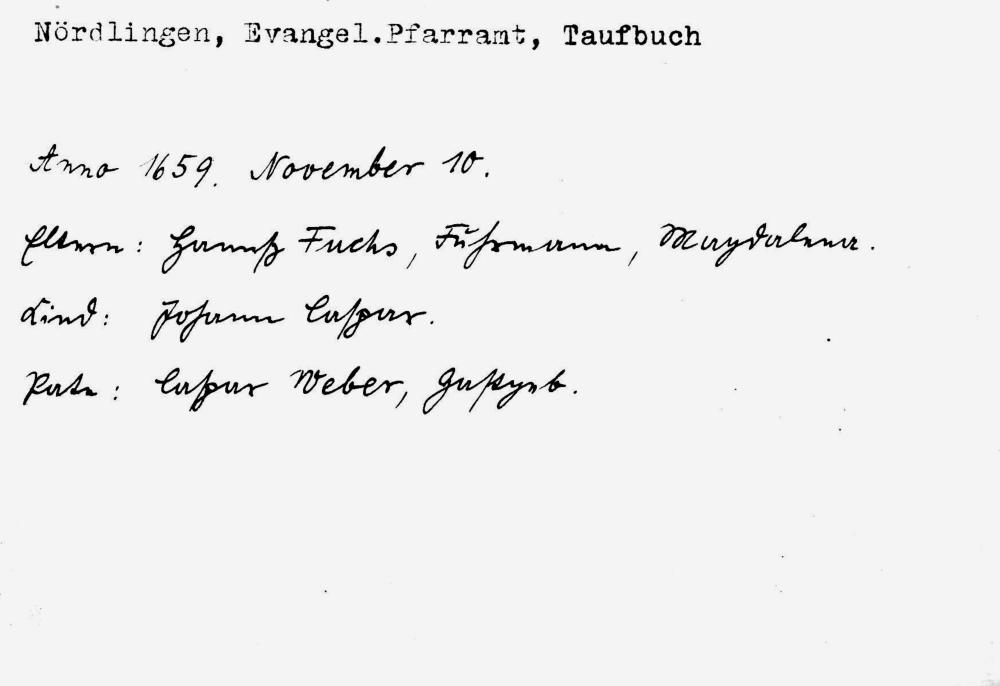 Nördlingen, Evangel.Pfarramt, Taufbuch
Anno 1659. November 10.
Eltern: Hannß Fuchs, Fuhrmann, Magdalena.
Kind: Johann Caspar.
Pate: Caspar Weber, Gastgeb.